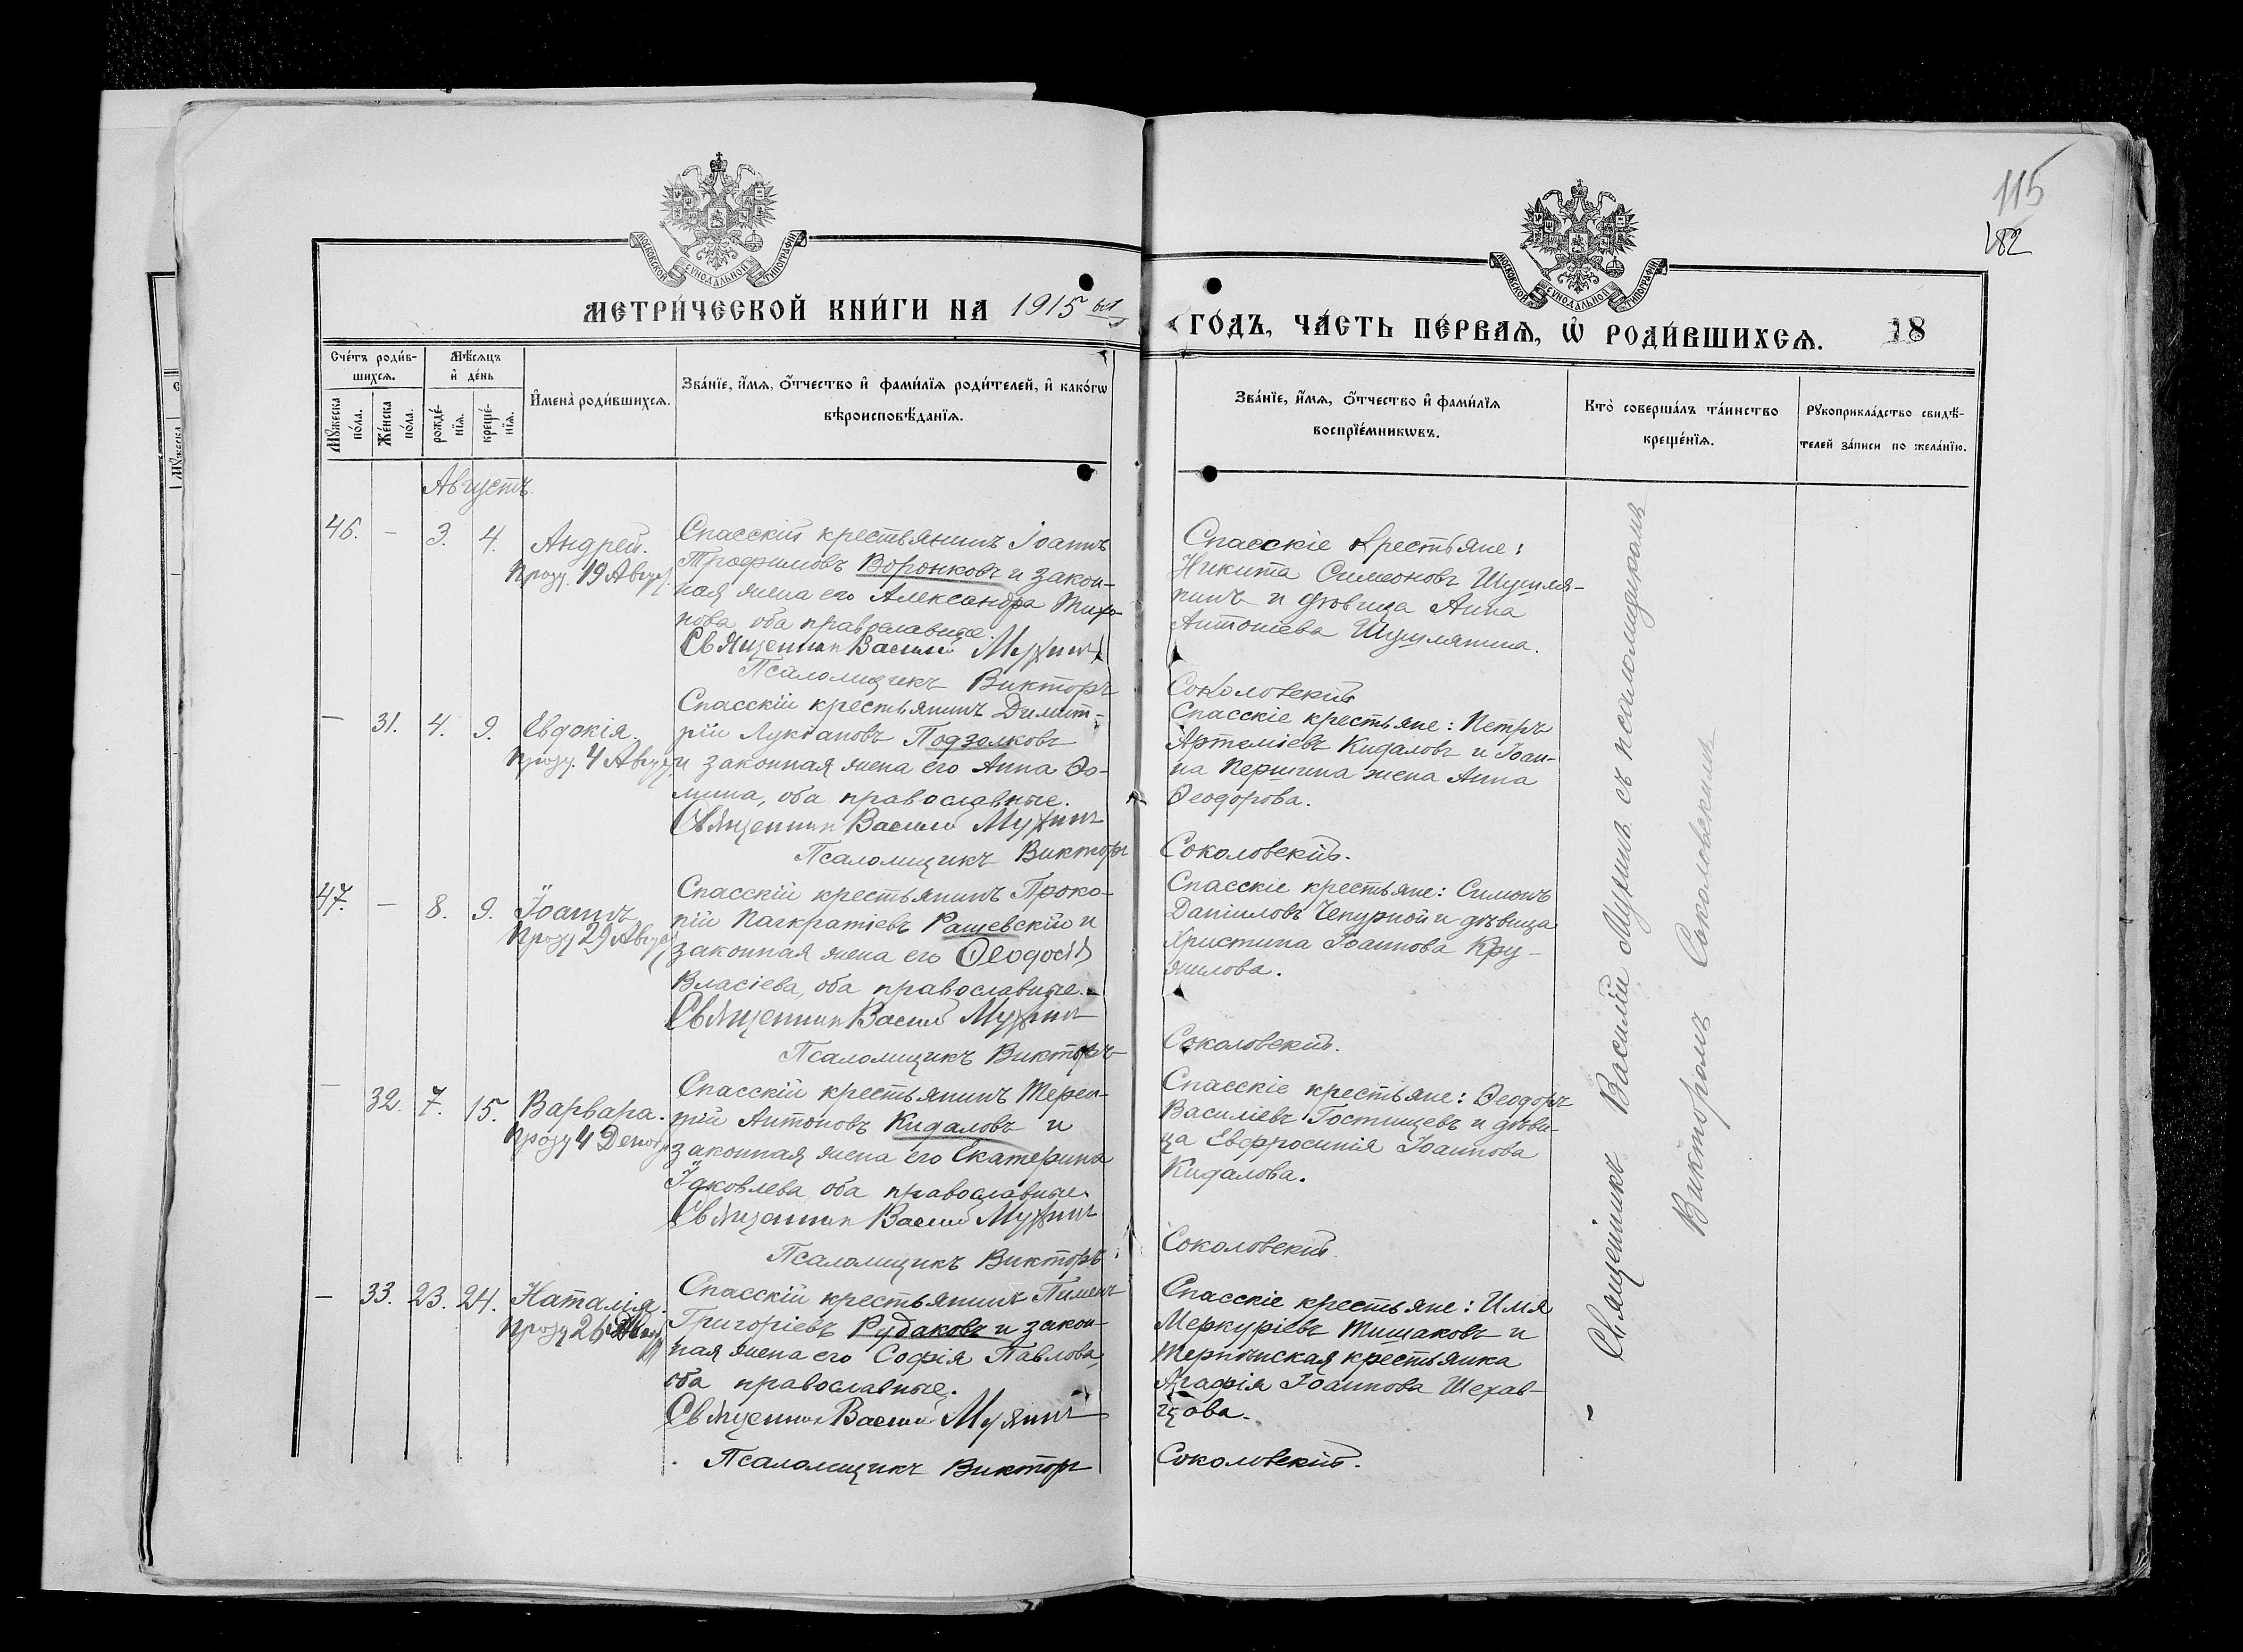 115
182
МОСКОВСКОЙ СѴНОДАЛЬНОЙ ТИПОГРАФІИ
МОСКОВСКОЙ СѴНОДАЛЬНОЙ ТИПОГРАФІИ
МЕТРИ́ЧЕСКОЙ КНИ́ГИ НА 1915 ый
ГО́ДЪ, ЧА́СТЬ ПЕ́РВАѦ, Ѡ҆ РОДИ́ВШИХСѦ. 18
Сче́тъ роди́в-
шихсѧ.
Мꙋ́жеска
по́ла.
Же́нска
по́ла.
Мѣ́сѧцъ
и҆ де́нь
рожде́-
нїѧ.
креще́-
нїѧ.
И҆мена̀ роди́вшихсѧ.
Зва́нїе, и҆́мѧ, ѻ҆́тчество и҆ фами́лїѧ роди́телей, и҆ како́гѡ
вѣроисповѣ́данїѧ.
Зва́нїе, и҆́мѧ, ѻ҆́тчество и҆ фами́лїѧ
воспрїе́мникѡвъ.
Кто̀ соверша́лъ та́инство
креще́нїѧ.
Рꙋкоприкла́дство свидѣ́-
телей за́писи по жела́нїю.
Августъ.
46. – 3. 4. Андрей.
19 Авгус.
Спасскій крестьянинъ Іоаннъ
Трофимовъ Воронковъ и закон-
ная жена его Александра Тихо-
нова, оба православные.
Священник Василий Мухин
Псаломщикъ Викторъ
Спасскіе крестьяне:
Никита Симеоновъ Шушля-
пинъ и дѣвица Анна
Антоніева Шушляпина.
Соколовскій
– 31. 4. 9. Евдокія.
4 Авгус.
Спасскій крестьянинъ Димит-
рій Лукіановъ Подзолковъ
и законная жена его Анна Ѳо-
мина, оба православные.
Священник Василий Мухинъ
Псаломщикъ Викторъ
Спасскіе крестьяне: Петръ
Артеміевъ Кидаловъ и Іоан-
на Першина жена Анна
Ѳеодорова.
Соколовскій.
47. – 8. 9. Іоаннъ
29 Авгус.
Спасскій крестьянинъ Проко-
пій Панкратіевъ Ращевскій и
законная жена его Ѳеодосія
Власіева, оба православные.
Священник Василий Мухинъ
Псаломщикъ Викторъ
Спасскіе крестьяне: Симонъ
Даніиловъ Чепурной и дѣвица
Христина Іоаннова Кру-
жилова.
Соколовскій.
– 32. 7. 15. Варвара.
4 Декаб.
Спасскій крестьянинъ Терен-
тій Антоновъ Кидаловъ и
законная жена его Екатерина
Іаковлева, оба православные.
Священник Василий Мухинъ
Псаломщикъ Викторъ
Спасскіе крестьяне: Ѳеодоръ
Василіевъ Гостищевъ и дѣви-
ца Евфросинія Іоаннова
Кидалова.
Соколовскій.
– 33. 23. 24. Наталія.
26
Спасскій крестьянинъ Пименъ
Григоріевъ Рудаковъ и закон-
ная жена его Софія Павлова,
оба православные.
Священник Василий Мухинъ
Псаломщикъ Викторъ
Спасскіе крестьяне: Илія
Меркуріевъ Тишаковъ и
крестьянка
Агафія Іоаннова Шехав-
цова.
Соколовскій.
Священникъ Василій Мухинъ съ псаломщикомъ
Викторомъ Соколовскимъ